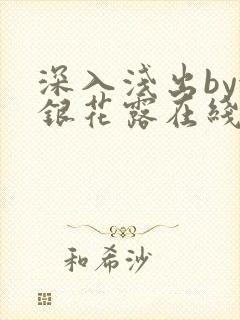 深入浅出by
銀花露在綫
和希沙